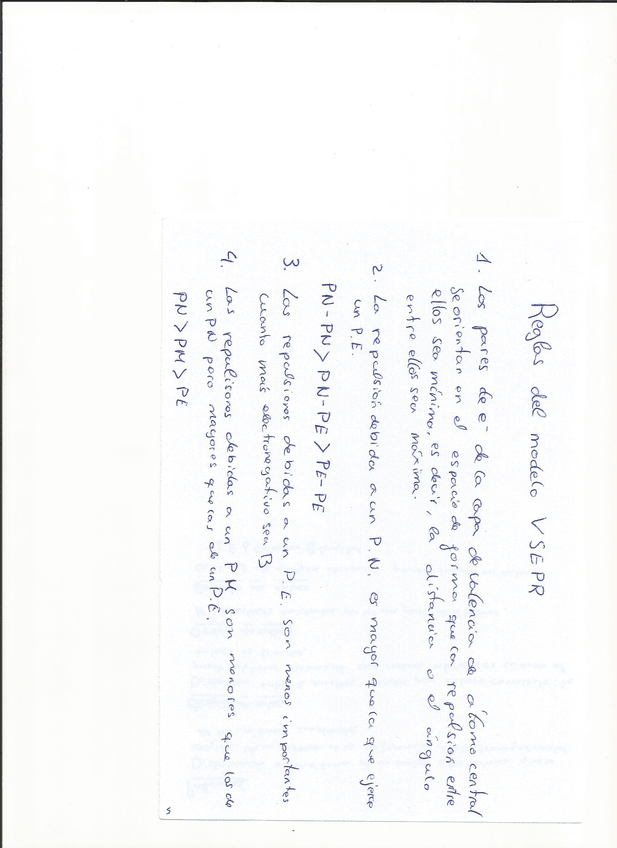 Reglas del modelo VSEPR
1. Los pares de e⁻ de la capa de valencia de átomo central
se orientan en el espacio de forma que la repulsion entre
ellos sea mínima, es decir, la distancia o el ángulo
entre ellos sea máxima.
2. La repulsión debida a un P.N. es mayor que la que ejerce
un P.E.
PN-PN > PN-PE > PE-PE
3. Las repulsiones debidas a un P.E. son menos importantes
cuanto más electronegativo sea B
4. Las repulsiones debidas a un PM son menores que las de
un PN pero mayores que las de un P.E.
PN > PM > PE
5